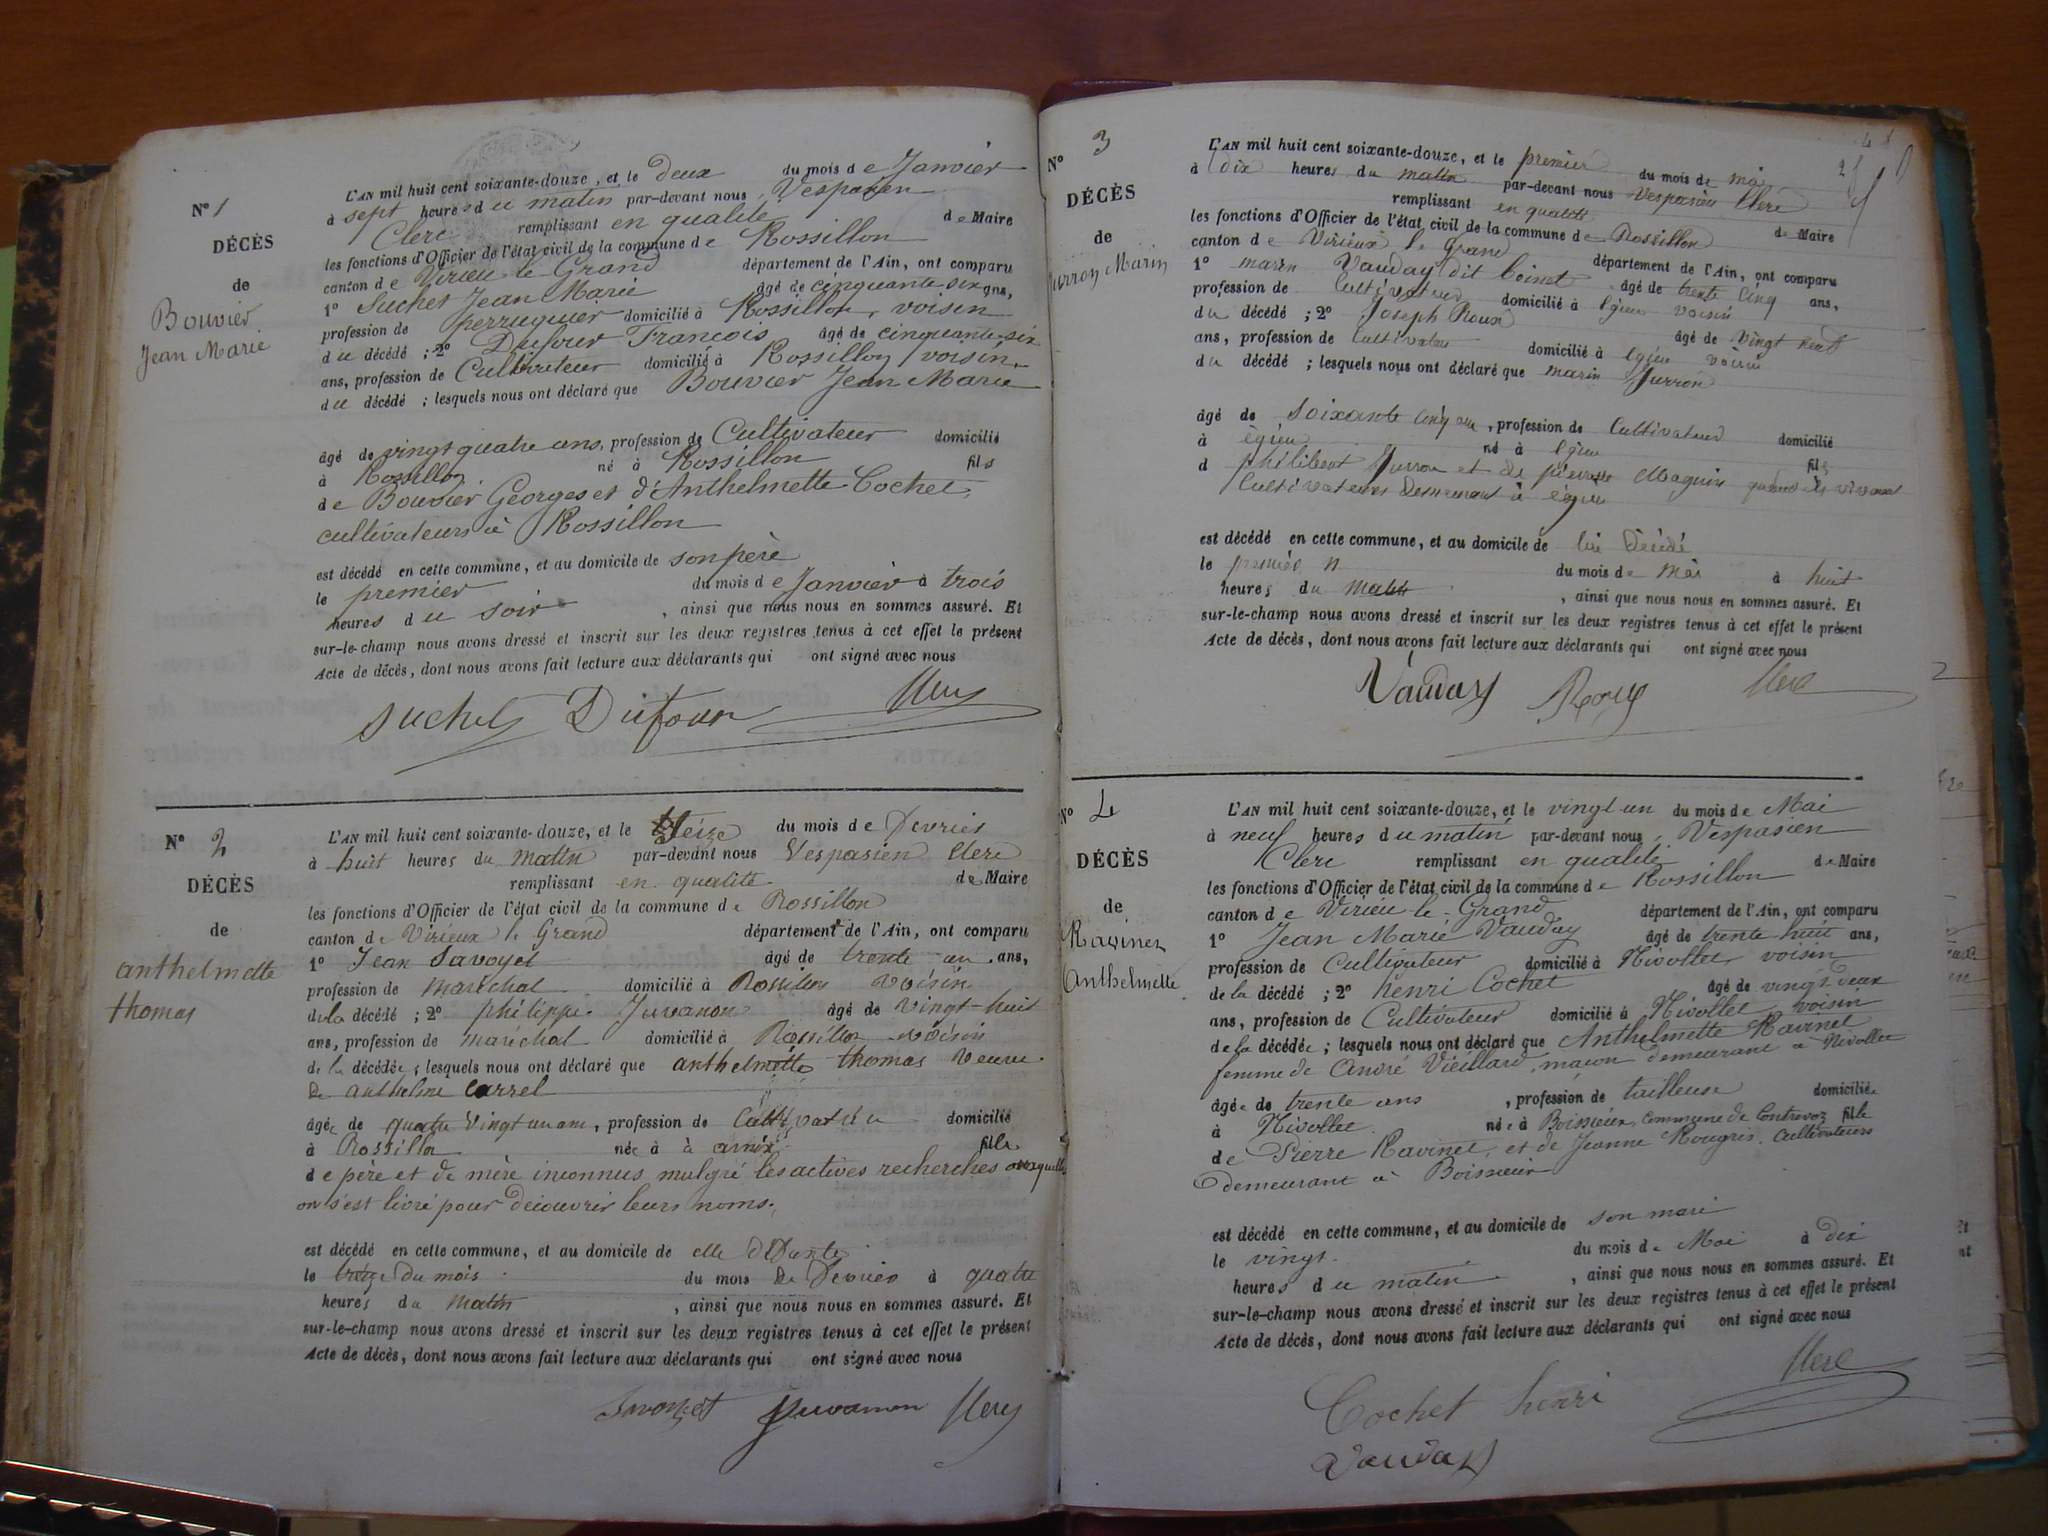 N° 1
DÉCÈS
de
Bouvier
Jean Marie
L'AN mil huit cent soixante-douze, et le deux du mois de Janvier
à sept heures du matin par-devant nous, Vespasien
Clerc remplissant en qualité de Maire
les fonctions d'Officier de l'état civil de la commune de Rossillon
canton de Virieu-le-Grand département de l'Ain, ont comparu
1° Suchet Jean Marie âgé de cinquante-six ans,
profession de perruquier domicilié à Rossillon, voisin
du décédé ; 2° Dufour François âgé de cinquante-six
ans, profession de Cultivateur domicilié à Rossillon, voisin
du décédé ; lesquels nous ont déclaré que Bouvier Jean Marie
âgé de vingt quatre ans, profession de Cultivateur domicilié
à Rossillon né à Rossillon fils
de Bouvier Georges et d'Anthelmette Cochet,
cultivateurs à Rossillon
est décédé en cette commune, et au domicile de son père
le premier du mois de Janvier à trois
heures du soir , ainsi que nous nous en sommes assuré. Et
sur-le-champ nous avons dressé et inscrit sur les deux registres tenus à cet effet le présent
Acte de décès, dont nous avons fait lecture aux déclarants qui ont signé avec nous
Suchet Dufour Clerc
N° 2
DÉCÈS
de
anthelmette
thomas
L'AN mil huit cent soixante-douze, et le treize du mois de Fevrier
à huit heures du matin par-devant nous Vespasien Clerc
remplissant en qualité de Maire
les fonctions d'Officier de l'état civil de la commune de Rossillon
canton de Virieux le Grand département de l'Ain, ont comparu
1° Jean Savoyet âgé de trente un ans,
profession de maréchal domicilié à Rossillon voisin
de la décédé ; 2° philippe Juvanon âgé de vingt-huit
ans, profession de maréchal domicilié à Rossillon voisin
de la décédée ; lesquels nous ont déclaré que anthelmette thomas veuve
de anthelme Carrel
âgée de quatre vingt un ans, profession de Cultivateur domicilié
à Rossillon née à à arnix fille
de père et de mère inconnus malgré les actives recherches auxquelles
on s'est livré pour découvrir leurs noms.
est décédé en cette commune, et au domicile de elle défunte
le treize du mois du mois de Fevrier à quatre
heures du matin , ainsi que nous nous en sommes assuré. Et
sur-le-champ nous avons dressé et inscrit sur les deux registres tenus à cet effet le présent
Acte de décès, dont nous avons fait lecture aux déclarants qui ont signé avec nous
Savoyet Juvanon Clerc
N° 3
DÉCÈS
de
Jurron Marin
L'AN mil huit cent soixante-douze, et le premier du mois de mai
à dix heures du matin par-devant nous Vespasien Clerc
remplissant en qualité de Maire
les fonctions d'Officier de l'état civil de la commune de Rossillon
canton de Virieux le Grand département de l'Ain, ont comparu
1° marin Vauday dit âgé de trente cinq ans,
profession de Cultivateur domicilié à Egieu voisin
du décédé ; 2° Joseph Roux âgé de vingt neuf
ans, profession de Cultivateur domicilié à Egieu voisin
du décédé ; lesquels nous ont déclaré que marin Jurron
âgé de soixante cinq ans, profession de Cultivateur domicilié
à égieu né à Egieu fils
d philibert Jurron et de pierrette Maguin quand ils vivaient
Cultivateurs Demeurant à égieu
est décédé en cette commune, et au domicile de lui Décédé
le premier du mois de Mai à huit
heures du matin , ainsi que nous nous en sommes assuré. Et
sur-le-champ nous avons dressé et inscrit sur les deux registres tenus à cet effet le présent
Acte de décès, dont nous avons fait lecture aux déclarants qui ont signé avec nous
Vauday Roux Clerc
N° 4
DÉCÈS
de
Ravinet
Anthelmette
L'AN mil huit cent soixante-douze, et le vingt un du mois de Mai
à neuf heures du matin par-devant nous, Vespasien
Clerc remplissant en qualité de Maire
les fonctions d'Officier de l'état civil de la commune de Rossillon
canton de Virieu-le-Grand département de l'Ain, ont comparu
1° Jean Marie Vauday âgé de trente huit ans,
profession de Cultivateur domicilié à Nivollet voisin
de la décédé ; 2° henri Cochet âgé de vingt deux
ans, profession de Cultivateur domicilié à Nivollet voisin
de la décédée ; lesquels nous ont déclaré que Anthelmette Ravinet
femme de André Vieillard, maçon demeurant à Nivollet
âgée de trente ans , profession de tailleuse domiciliée
à Nivollet née à Boissieu, commune de Contrevoz fille
de Pierre Ravinet, et de Jeanne Rougris, cultivateurs
demeurant à Boissieu
est décédé en cette commune, et au domicile de son mari
le vingt du mois de Mai à dix
heures du matin , ainsi que nous nous en sommes assuré. Et
sur-le-champ nous avons dressé et inscrit sur les deux registres tenus à cet effet le présent
Acte de décès, dont nous avons fait lecture aux déclarants qui ont signé avec nous
Cochet henri Clerc
Vauday